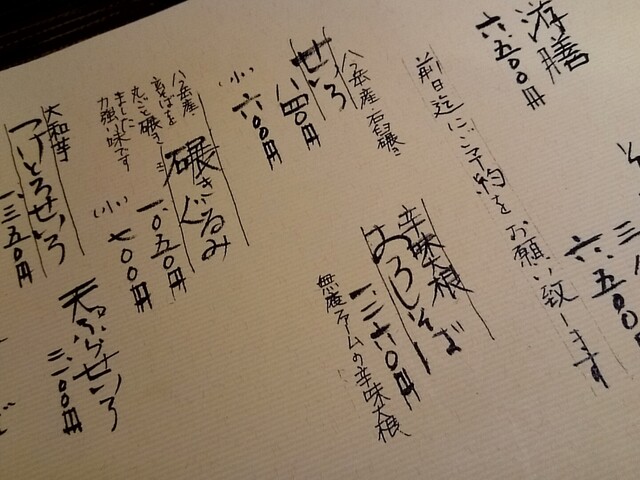 游膳
六、五〇〇円
前日迄にご予約をお願い致します
六、五〇〇
八ヶ岳産 石臼碾き
せいろ
八四〇円
小 六〇〇円
辛味大根
おろしそば
一、二六〇円
無農ファームの辛味大根
碾きぐるみ
一、〇五〇円
小 七〇〇円
八ヶ岳産
玄そばを
丸ごと碾きこ
ました
力強い味です
大和芋
つけとろせいろ
一、三五〇円
天ぷらせいろ
二、一〇〇円